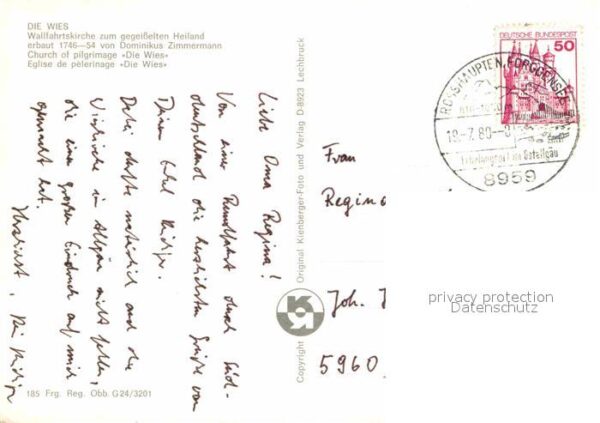 DIE WIES
Wallfahrtskirche zum gegeißelten Heiland
erbaut 1746—54 von Dominikus Zimmermann
Church of pilgrimage «Die Wies»
Eglise de pèlerinage «Die Wies»
Liebe Oma Regina!
Von einer Rundfahrt durch Süd-
deutschland die herzlichsten Grüße von
Deinem Enkel Rüdiger.
Dabei durfte natürlich auch die
Wieskirche im Allgäu nicht fehlen,
die einen großen Eindruck auf mich
gemacht hat.
Dein Rüdiger
185 Frg. Reg. Obb. G24/3201
Copyright Original Kienberger-Foto und Verlag D-8923 Lechbruck
DEUTSCHE BUNDESPOST
50
ROSSHAUPTEN, FORGGENSEE
18.-7.80
8959
Frau
Regina
Joh.
5960
privacy protection
Datenschutz